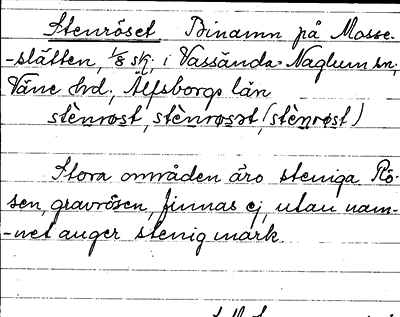 Stenröset Binamn på Mosse-
-slätten, 1/8 sk, i Vassända-Naglum sn,
Väne hd, Älfsborgs län
stènrøst, stènrøsət (stènrøst)
Stora områden äro steniga. Rö-
sen, gravrösen, finnas ej, utan nam-
-net anger stenig mark.